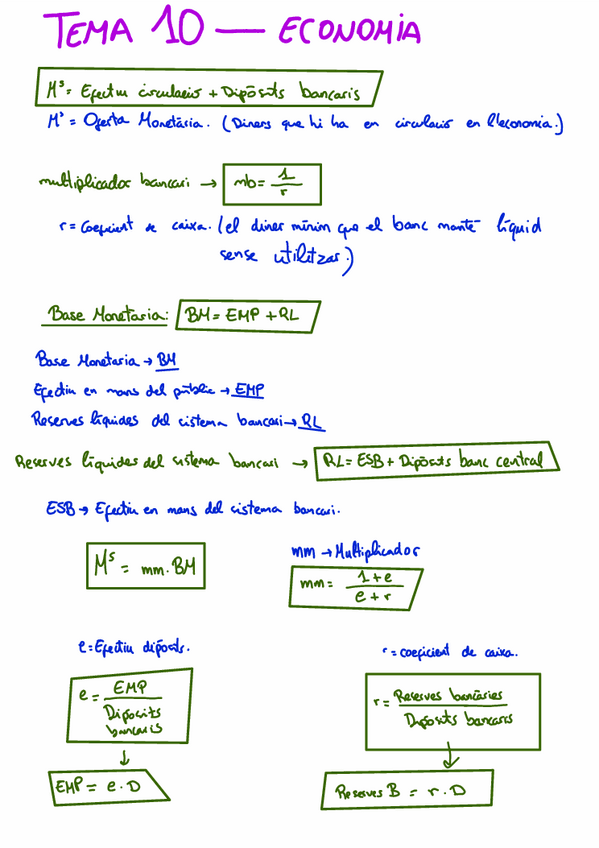 TEMA 10 — ECONOMIA
Mˢ = Efectiu circulació + Dipòsits bancaris
Mˢ = Oferta Monetària. (Diners que hi ha en circulació en l'economia.)
multiplicador bancari → mb = 1/r
r = coeficient de caixa. (el diner mínim que el banc manté líquid
sense utilitzar.)
Base Monetaria: BM = EMP + RL
Base Monetaria → BM
Efectiu en mans del públic → EMP
Reserves líquides del sistema bancari → RL
Reserves líquides del sistema bancari → RL = ESB + Dipòsits banc central
ESB → Efectiu en mans del sistema bancari.
Mˢ = mm·BM
mm → Multiplicador
mm = 1+e / e+r
e = Efectiu dipòsits.
r = coeficient de caixa.
e = EMP / Dipòsits bancaris
r = Reserves bancàries / Dipòsits bancaris
EMP = e·D
Reserves B = r·D